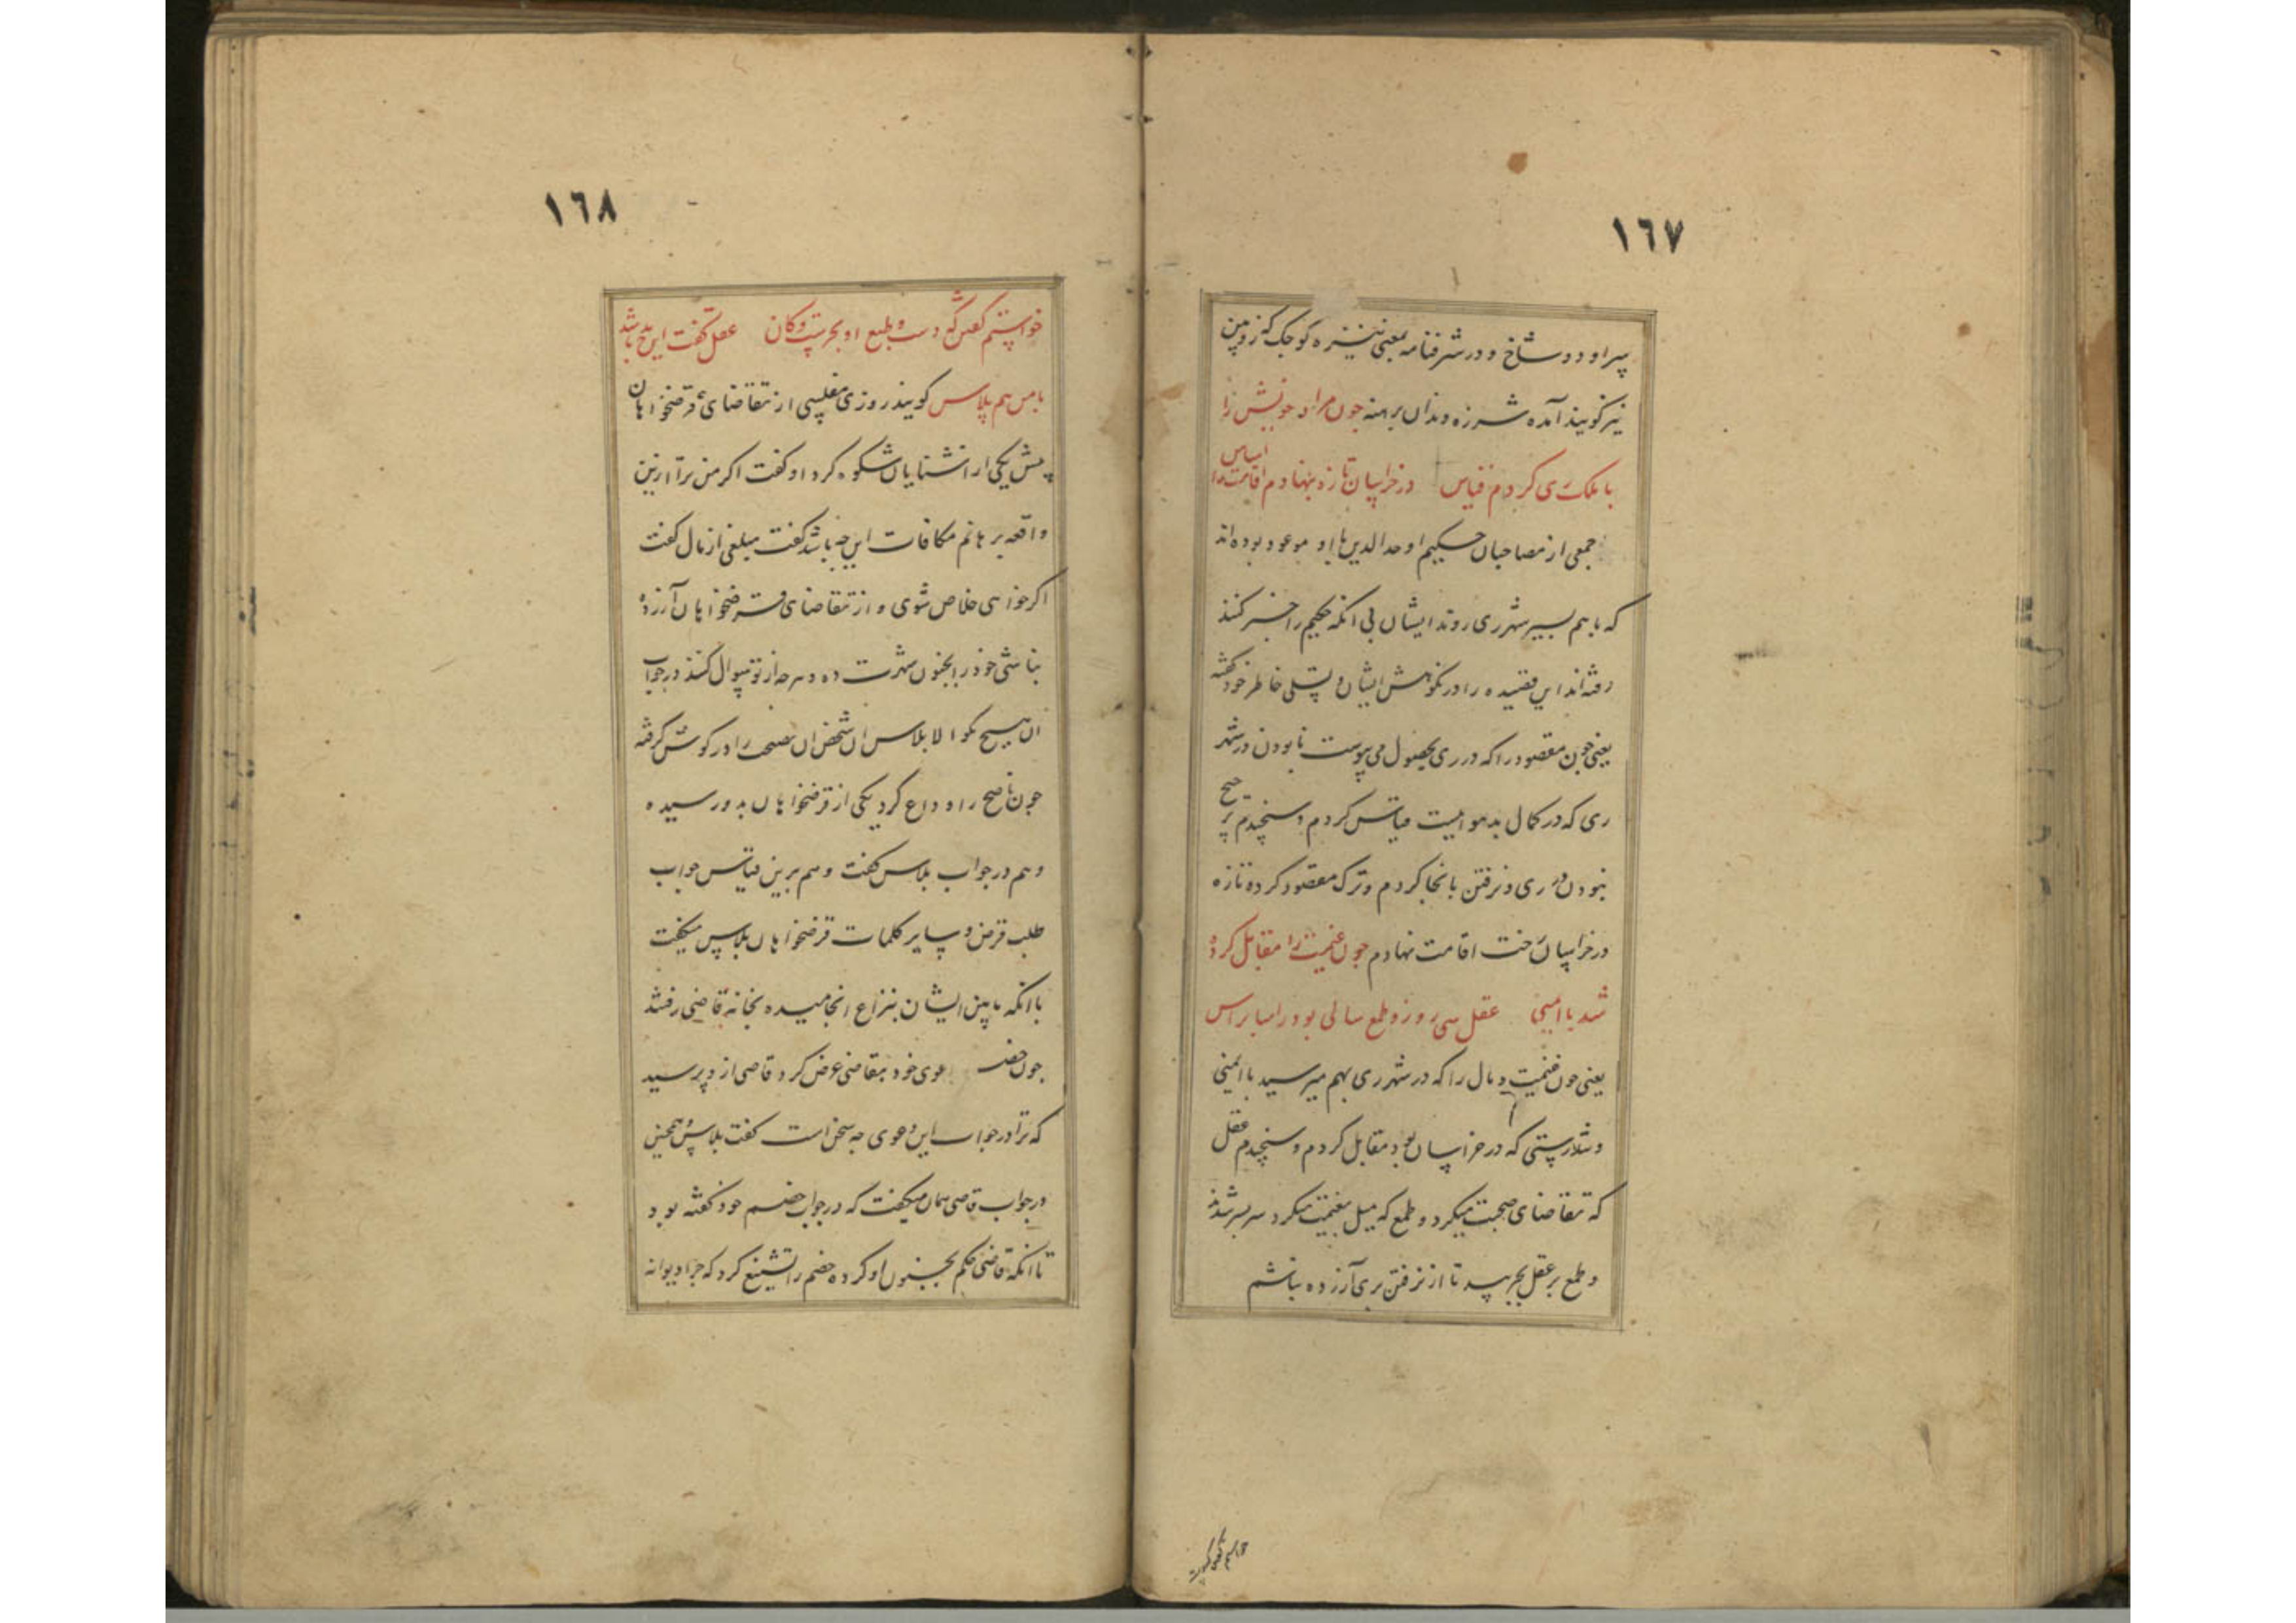 ١٦٧
سر او دو شاخ و در شرفنامه بمعنی نیزه کوچک که زوپین
نیز کویند آمده شرزه دندان برهنه جون مراد خویش را
با ملک ری کردم قیاس در خراسان تازه بنهادم اقامت را
اساس
جمعی از مصاحبان حکیم اوحد الدین با او موعود بوده اند
که با هم بسیر شهر ری روند ایشان بی انکه حکیم را خبر کنند
رفته اند این قصیده را در نکوهش ایشان و تسلی خاطر خود کفته
یعنی جون مقصود را که در ری بحصول می پیوست با بودن در شهر
ری که در کمال بد هواییست قیاس کردم و سنجیدم
نبودن در ری و نرفتن بانجا کردم و ترک مقصود کرده تازه
در خراسان رخت اقامت نهادم جون غنیمت را مقابل کرده
شد با ایمنی عقل سی روز و طمع سالی بود راسا براس
یعنی جون غنیمت و مال را که در شهر ری بهم میرسید با ایمنی
و تندرستی که در خراسان بود مقابل کردم و سنجیدم عقل
که تقاضای صحبت میکرد و طمع که میل بغنیمت میکرد سر بسر شدند
و طمع بر عقل بچربید تا از نرفتن بری آزرده باشم
١٦٨
خواستم کفتن که دست و طبع او بحرست و کان عقل کفت این مدح باشد
با من هم پلاس کویند روزی مفلسی از تقاضای قرضخواهان
پیش یکی از اشنایان شکوه کرد او کفت اکر من ترا ازین
واقعه برهانم مکافات این چه باشد کفت مبلغی از مال کفت
اکر خواهی خلاص شوی و از تقاضای قرضخواهان آزرده
نباشی خود را بجنون شهرت ده و هرجه از تو سوال کنند در جواب
ان هیچ مکو الا بلاس ان شخص ان نصیحت را در کوش کرفته
جون ناصح را وداع کرد یکی از قرضخواهان بدو رسیده
وهم در جواب بلاس کفت و هم برین قیاس جواب
طلب قرض و سایر کلمات قرضخواهان بلاس میکفت
با انکه مابین ایشان بنزاع انجامیده بخانه قاضی رفتند
جون خصم دعوی خود بقاضی عرض کرد قاضی از و پرسید
که ترا در جواب این دعوی جه سخن است کفت بلاس همجنین
در جواب قاضی همان میکفت که در جواب خصم خود کفته بود
تا انکه قاضی حکم بجنون او کرده خصم را تشنیع کرد که جرا دیوانه